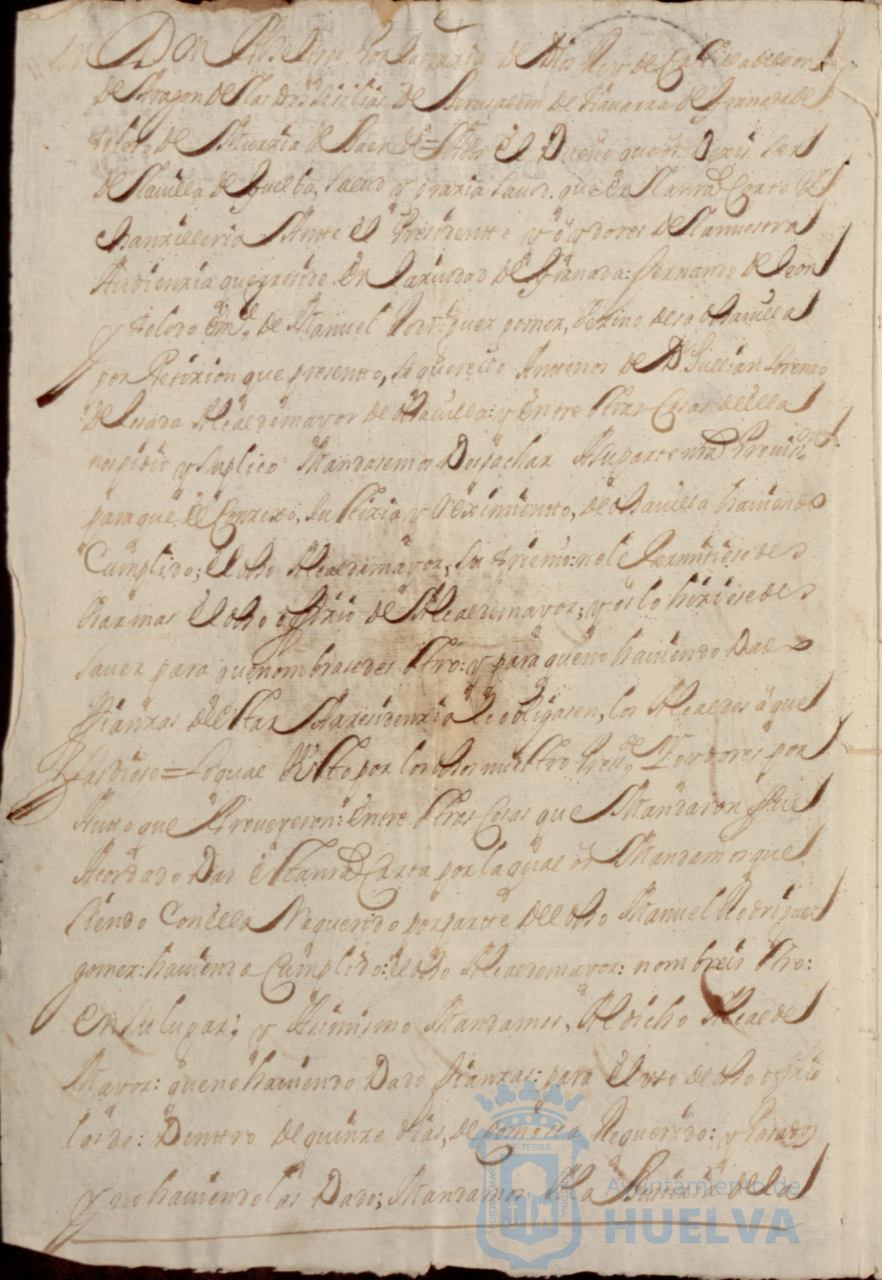 Don Phelipe Por la grazia de Dios Rey de Castilla de leon
de Aragon de las dos Sisilias de Jerusalem de Nauarra de Granada de
toledo de Murzia de Jaen &ª = A Vos el Dueño que
de la uilla de Guelba, salud y grazia saued. que en la nrâ Corte y
chanzilleria Ante el Presidente y oydores de la nuestra
Audienzia que rreside En la ziudad de Granada: fernando de leon
y toledo En nê. de Manuel Rodriguez gomez, Vezino desa dha uilla
por Petizion que presentto, se querello Antenos de Dn Jullian Lorenzo
de losada Alcalde mayor de dha uilla: y Entre otras Cosas de ella
nos pidio y suplico Mandasemos Despachar A su parte nrâ Prouison
para que el Conzexo, Justizia y rreximientto, de dha uilla hauiendo
Cumplido; el dho Alcalde mayor, su trienio: no le Permitiese de
Vsar mas el dho ofizio de Alcalde mayor; y os lo hiziese de
sauer para que nombrasedes otro: y para que no hauiendo Dado
fianzas de estar A rresidenzia le obligasen, los Alcaldes a que
las diese = lo qual Visto por los dhos nuestro Press.te Y oydores por
Autto que Proueyeron: Entre otras Cosas que Mandaron fue
Acordado Dar Esta nrâ Carta por la qual os Mandamos que
siendo Con ella Requerido por partte del dho Manuel Rodriguez
gomez: hauiendo Cumplido: el dho Alcalde mayor: nombreis otro:
en su lugar; y Asimismo Mandamos, Al dicho Alcalde
Mayor: que no hauiendo Dado fianzas: para El vso de dho ofizio
las de: Denttro de quinze dias, de Como sea Requerido: y Pasados
y no hauiendo las Dado; Mandamos A la Justizia de la
Ayuntamiento de
HUELVA